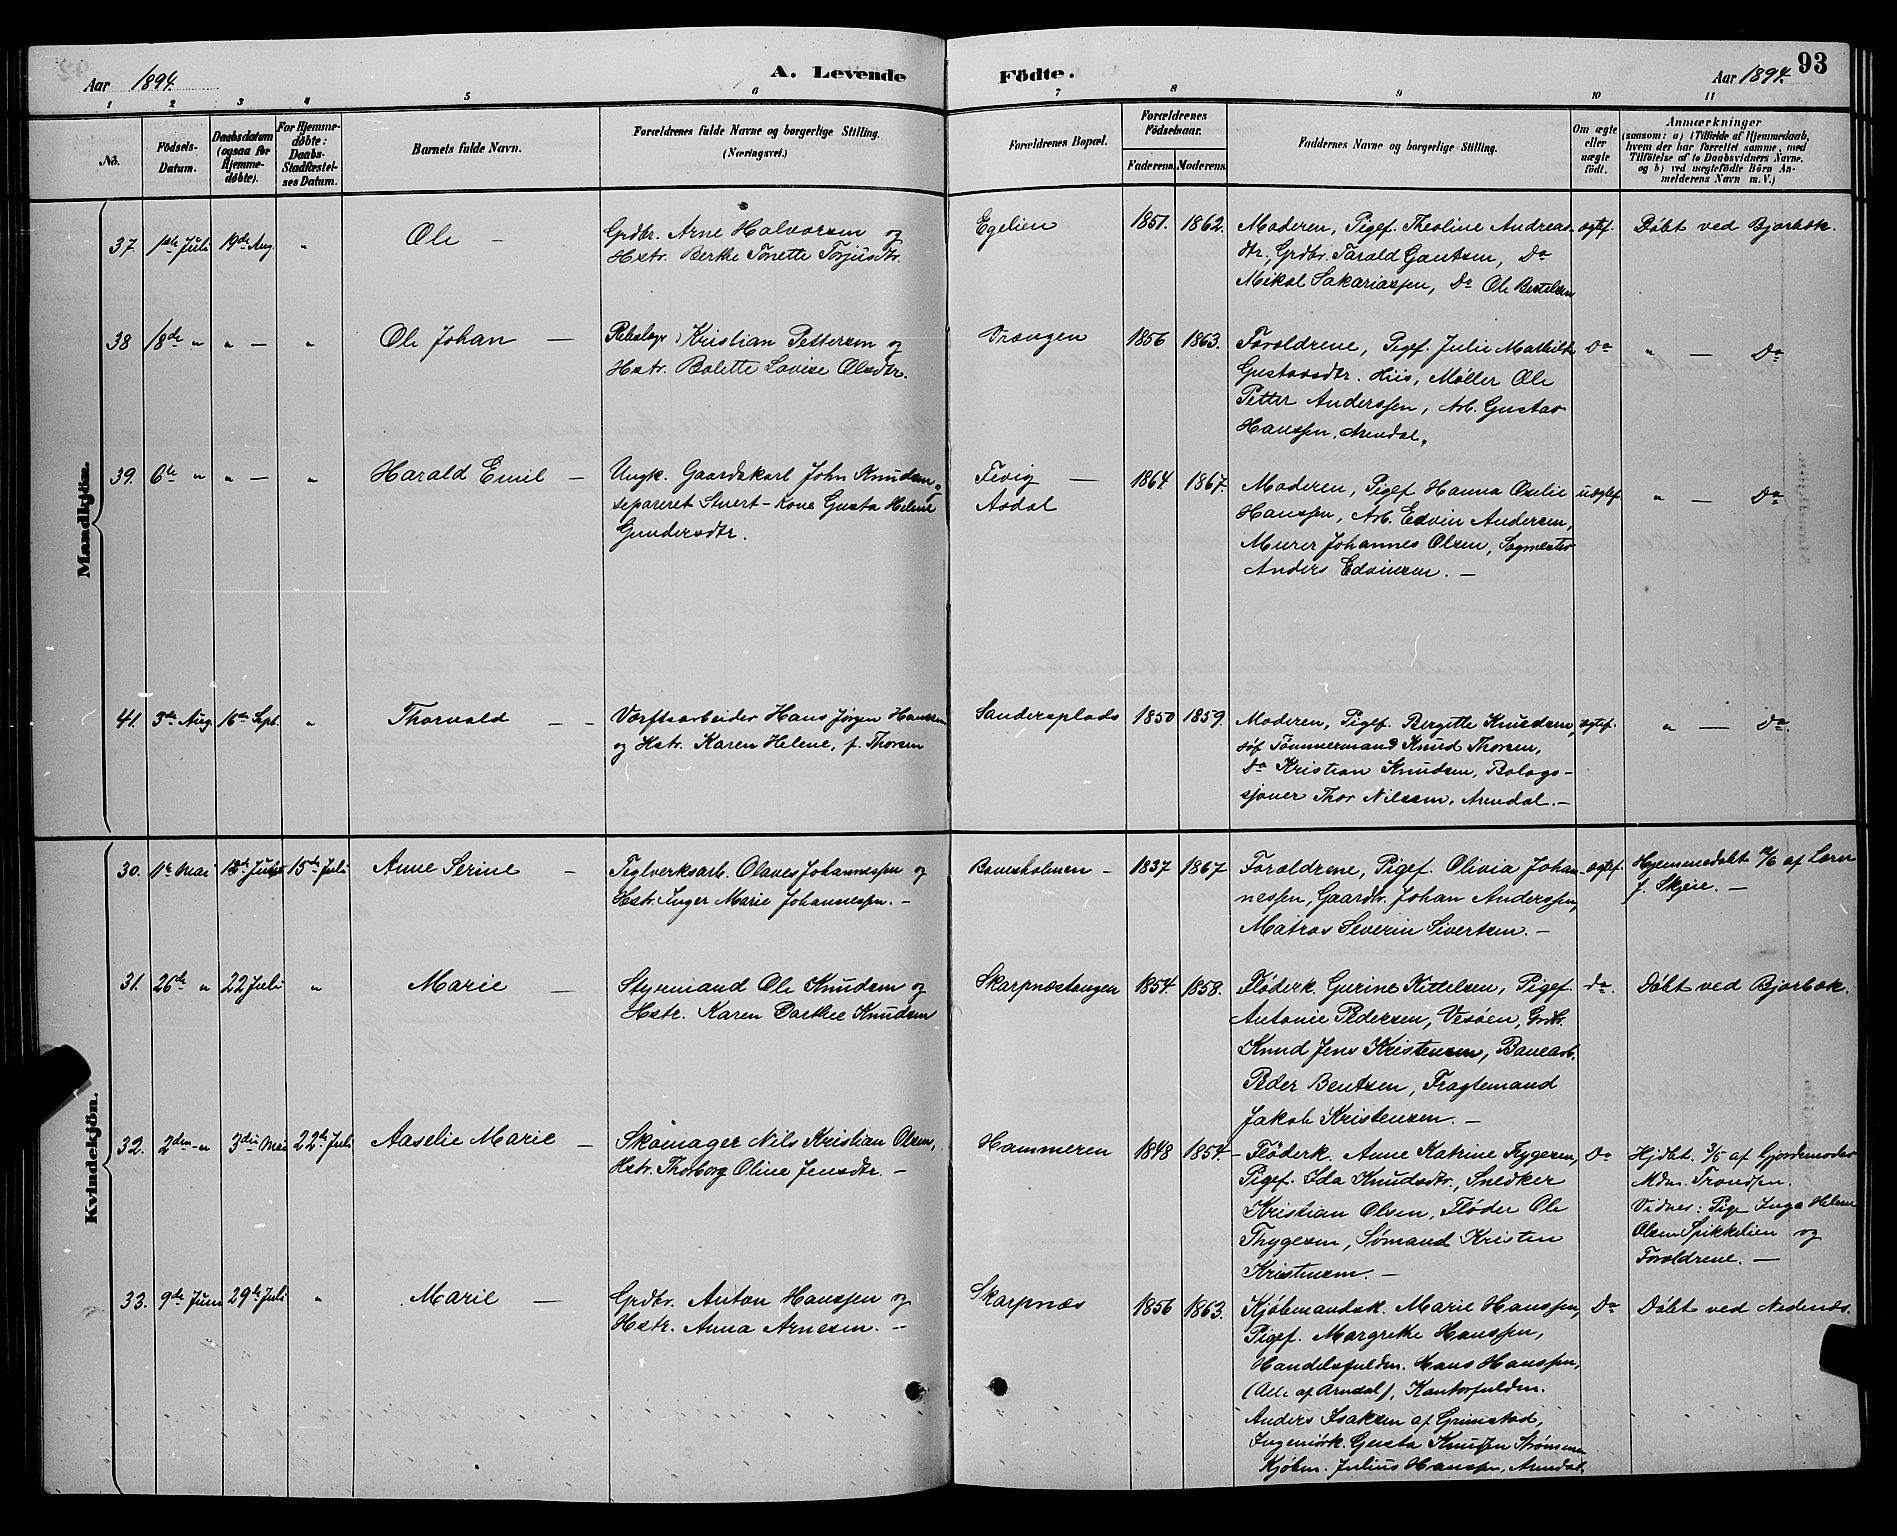 Aar 1894.
A. Levende Fødte.
Aar 1894.
93
1 2 3 4 5 6 7 8 9 10 11
No.
Fødsels-Datum.
Daabsdatum (ogsaa for Hjemme-døbte).
For Hjemme-døbte: Daabs-Stadfæstel-ses Datum.
Barnets fulde Navn.
Forældrenes fulde Navne og borgerlige Stilling.
(Næringsvei.)
Forældrenes Bopæl.
Forældrenes Fødselsaar.
Faderens. Moderens.
Faddernes Navne og borgerlige Stilling.
Om ægte eller uægte født.
Anmærkninger
(saasom: a) i Tilfælde af Hjemmedaab,
hvem der har forrettet samme, med
Tilføielse af to Daabsvidners Navne,
og b) ved uægtefødte Børn An-
melderens Navn m. V.)
Mandkjön.
37. 1ste Juli 19de Aug. " Ole –
Grdbr. Arne Halvorsen og
Hstr. Berthe Tonette Torjusdtr.
Egelien 1851. 1862.
Moderen, Pigef. Theoline Andreas-
dtr., Grdbr. Tarald Gautsen, Do
Mikal Sakariassen, Do Ole Bertelsen
ægtef. Døbt ved Bjorbæk.
38 18de " " — " Ole Johan —
Kristian Pettersen og
Hstr. Bolette Lovise Olsdtr.
Vrængen 1856 1863.
Forældrene, Pigef. Julie Mathilde
Gustavsdtr. Hiis, Møller Ole
Petter Anderssen, Arb. Gustav
Hanssen, Arendal.
Do " — Do
39. 6te " " — " Harald Emil —
Ungk. Gaardskarl John Knudsen,
separeret Stuert-Kone Gusta Helene
Gundersdtr.
Fevig —
Aadal
1864 1867.
Moderen, Pigef. Hanna Oselie
Hanssen, Arb. Edvin Andersen,
Murer Johannes Olsen, Sagmester
Anders Edvinsen. —
uægtef. " — Do
41. 3die Aug. 16de Sept. " Thorvald — –
Værftsarbeider Hans Jørgen Hanssen
og Hstr. Karen Helene, f. Thorsen
Sandersplads 1850 1859.
Moderen, Pigef. Bergitte Knudsen,
Tømmermand Knud Thorsen,
Do Kristian Knudsen, Bolags-
sjouer Thor Nilssen, Arendal. —
ægtef. " — Do.
Kvindekjön.
30. 1ste Mai 15de Juli Anne Serine –
Teglverksarb. Olaves Johannessen og
Hstr. Inger Marie Johannessen. –
Bovesholmen – 1837 1867
Forældrene, Pigef. Olivia Johan-
nessen, Gaardbr. Johan Anderssen,
Matros Severin Sivertsen. —
ægtef. Hjemmedøbt af Lærer
J. Skjeie. —
31. 26de " 22 Juli " Marie —
Styrmand Ole Knudsen og
Hstr. Karen Dorthee Knudsen
Skarpnæstangen 1854. 1858.
Fløderk. Gurine Kittelsen, Pigef.
Antonie Pedersen, Vesøen, Grdbr.
Knud Jens Kristensen, Banearb.
Peder Bentsen, Fragtemand
Jakob Kristensen. —
do. Døbt ved Bjorbæk.
32. 2den " 3die Mai 22de Juli Aaselie Marie —
Skomager Nils Kristian Olsen,
Hstr. Thorborg Oline Jensdtr. –
Hammeren 1848 1854
Fløderk. Anne Katrine Tygesen,
Pigef. Ida Knudsdtr., Snedker
Kristian Olsen, Fløder Ole
Thygesen, Sømand Kristen
Kristensen. —
Do Hjdbt. 3/5 af Gjordemoder
Mdm. Trondsen.
Vidner: Pige Inga Helene
Olsen Spikkelien og
Forældrene. —
33. 9de Juni 29de Juli " Marie —
Grdbr. Anton Hanssen og
Hstr. Anna Arnesen. –
Skarpnæs 1856 1863.
Kjøbmandsk. Marie Hanssen,
Pigef. Margrethe Hanssen,
Handelsfuldm. Hans Hanssen,
(Alle af Arndal), Kontorfuldm.
Anders Isaksen af Grimstad,
Ingeniørk. Gusta Knudsen Strømmen
Kjøbm. Julius Hanssen, Arendal
Do Døbt ved Nedenæs.